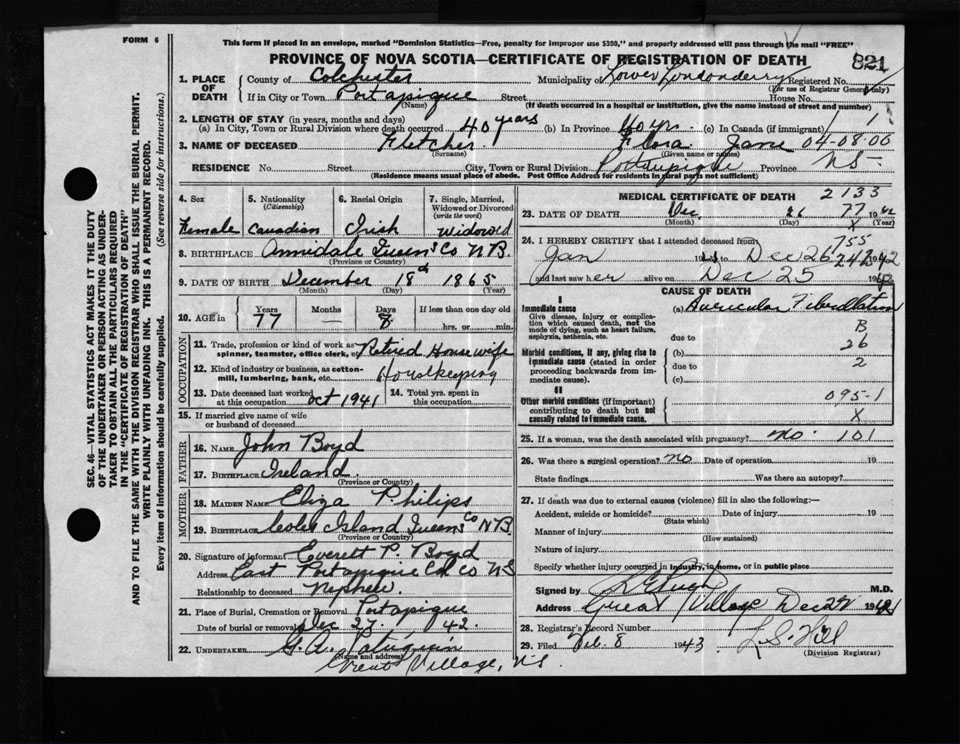 FORM 6
This form if placed in an envelope, marked "Dominion Statistics—Free, penalty for improper use $300," and properly addressed will pass through the mail "FREE"
PROVINCE OF NOVA SCOTIA—CERTIFICATE OF REGISTRATION OF DEATH
821
1. PLACE OF DEATH
County of Colchester Municipality of Lower Londonderry Registered No.
(For use of Registrar General only)
If in City or Town Portapique Street House No.
(Name) (If death occurred in a hospital or institution, give the name instead of street and number)
2. LENGTH OF STAY (in years, months and days)
(a) In City, Town or Rural Division where death occurred 40 years (b) In Province 40 yrs. (c) In Canada (if immigrant) 1 1
3. NAME OF DECEASED Fletcher. Flora Jane 04-08-06
(Surname) (Given name or names)
RESIDENCE No. Street City, Town or Rural Division Portapique Province NS-
(Residence means usual place of abode. Post Office Address for residents in rural parts not sufficient)
4. Sex
Female
5. Nationality
(Citizenship)
Canadian
6. Racial Origin
Irish
7. Single, Married, Widowed or Divorced
(write the word)
Widowed
8. BIRTHPLACE Annidale Queen's Co N.B.
(Province or Country)
9. DATE OF BIRTH December 18th 1865
(Month) (Day) (Year)
10. AGE in
Years Months Days If less than one day old
77 — 8 hrs. or min.
OCCUPATION
11. Trade, profession or kind of work as spinner, teamster, office clerk, etc. Retired Housewife
12. Kind of industry or business, as cotton-mill, lumbering, bank, etc. Housekeeping
13. Date deceased last worked at this occupation Oct 1941
14. Total yrs. spent in this occupation
15. If married give name of wife or husband of deceased
FATHER
16. NAME John Boyd
17. BIRTHPLACE Ireland.
(Province or Country)
MOTHER
18. MAIDEN NAME Eliza Philips
19. BIRTHPLACE Island Queens Co NB
(Province or Country)
20. Signature of informant Everett P. Boyd
Address East Portapique Col. Co NS
Relationship to deceased Nephew
21. Place of Burial, Cremation or Removal Portapique
Date of burial or removal Dec 27, 42.
22. UNDERTAKER G.A.
(Name and address)
Great Village, N.S.
MEDICAL CERTIFICATE OF DEATH 2133
23. DATE OF DEATH Dec 26 77 1942
(Month) (Day) X (Year)
24. I HEREBY CERTIFY that I attended deceased from: 755
Jan 19 to Dec 26 242 1942
and last saw her alive on Dec 25 1942
CAUSE OF DEATH
I
Immediate cause
Give disease, injury or complication which caused death, not the mode of dying, such as heart failure, asphyxia, asthenia, etc.
(a) Auricular Fibrillation
due to B
26
Morbid conditions, if any, giving rise to immediate cause (stated in order proceeding backwards from immediate cause).
(b)
due to 2
(c)
II
Other morbid conditions (if important) contributing to death but not causally related to immediate cause.
095-1
X
25. If a woman, was the death associated with pregnancy? no. 101
26. Was there a surgical operation? no Date of operation 19
State findings Was there an autopsy?
27. If death was due to external causes (violence) fill in also the following:—
Accident, suicide or homicide? Date of injury 19
(State which)
Manner of injury
(How sustained)
Nature of injury
Specify whether injury occurred in industry, in home, or in public place
Signed by M.D.
Address Great Village Dec 19
28. Registrar's Record Number
29. Filed Feb. 8 1943 L. S. Hill
(Division Registrar)
SEC. 46—VITAL STATISTICS ACT MAKES IT THE DUTY
OF THE UNDERTAKER OR PERSON ACTING AS UNDER-
TAKER TO OBTAIN ALL THE PARTICULARS REQUIRED
IN THE "CERTIFICATE OF REGISTRATION OF DEATH"
AND TO FILE THE SAME WITH THE DIVISION REGISTRAR WHO SHALL ISSUE THE BURIAL PERMIT.
WRITE PLAINLY WITH UNFADING INK. THIS IS A PERMANENT RECORD.
Every item of information should be carefully supplied. (See reverse side for instructions.)